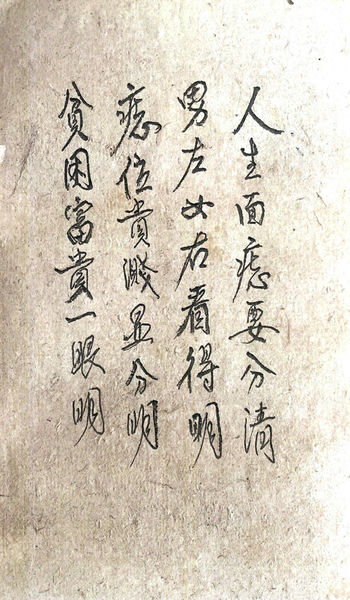 人生面痣要分清
男左女右看得明
痣位貴濺显分明
貧困富貴一眼明